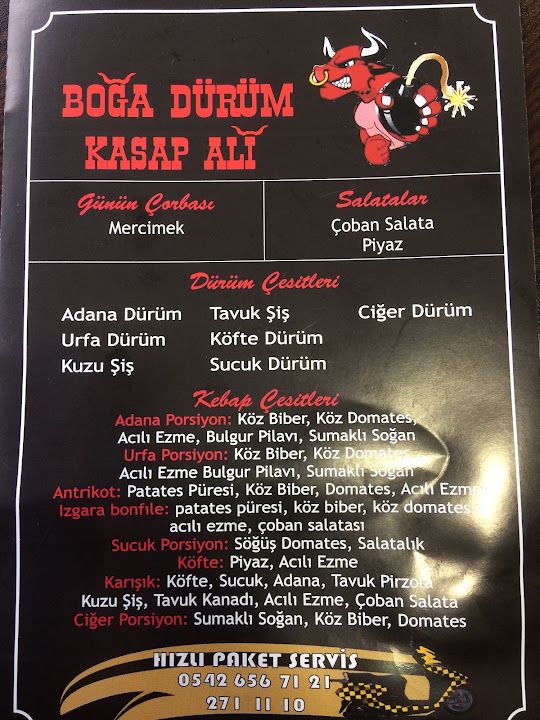 BOĞA DÜRÜM
KASAP ALİ
Günün Çorbası
Mercimek
Salatalar
Çoban Salata
Piyaz
Dürüm Çesitleri
Adana Dürüm
Tavuk Şiş
Ciğer Dürüm
Urfa Dürüm
Köfte Dürüm
Kuzu Şiş
Sucuk Dürüm
Kebap Çesitleri
Adana Porsiyon: Köz Biber, Köz Domates,
Acılı Ezme, Bulgur Pilavı, Sumaklı Soğan
Urfa Porsiyon: Köz Biber, Köz Domates,
Acılı Ezme Bulgur Pilavı, Sumaklı Soğan
Antrikot: Patates Püresi, Köz Biber, Domates, Acılı Ezme
Izgara bonfile: patates püresi, köz biber, köz domates,
acılı ezme, çoban salatası
Sucuk Porsiyon: Söğüş Domates, Salatalık
Köfte: Piyaz, Acılı Ezme
Karışık: Köfte, Sucuk, Adana, Tavuk Pirzola
Kuzu Şiş, Tavuk Kanadı, Acılı Ezme, Çoban Salata
Ciğer Porsiyon: Sumaklı Soğan, Köz Biber, Domates
HIZLI PAKET SERVİS
0542 656 71 21
271 11 10